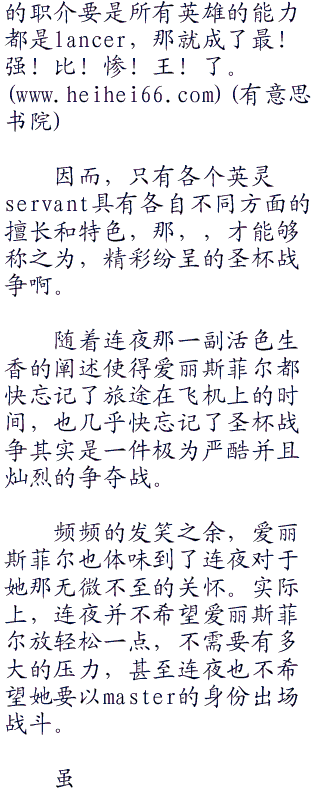 的职介要是所有英雄的能力
都是lancer，那就成了最！
强！比！惨！王！了。
(www.heihei66.com)(有意思
书院)
因而，只有各个英灵
servant具有各自不同方面的
擅长和特色，那，，才能够
称之为，精彩纷呈的圣杯战
争啊。
随着连夜那一副活色生
香的阐述使得爱丽斯菲尔都
快忘记了旅途在飞机上的时
间，也几乎快忘记了圣杯战
争其实是一件极为严酷并且
灿烈的争夺战。
频频的发笑之余，爱丽
斯菲尔也体味到了连夜对于
她那无微不至的关怀。实际
上，连夜并不希望爱丽斯菲
尔放轻松一点，不需要有多
大的压力，甚至连夜也不希
望她要以master的身份出场
战斗。
虽